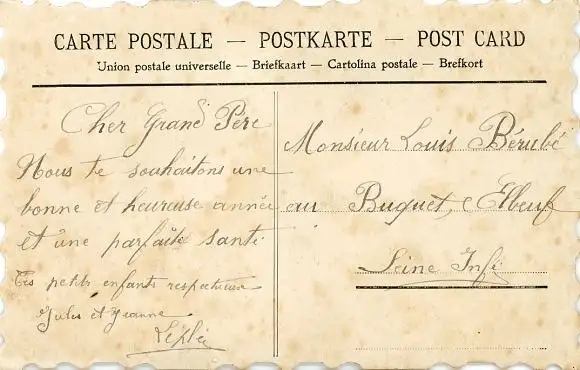 CARTE POSTALE — POSTKARTE — POST CARD
Union postale universelle — Briefkaart — Cartolina postale — Brefkort
Cher Grand Père
Nous te souhaitons une
bonne et heureuse année
et une parfaite santé
Tes petits enfants respectueux
Jules et Jeanne
Monsieur Louis Bérubé
au Buquet, Elbeuf
Seine Infé